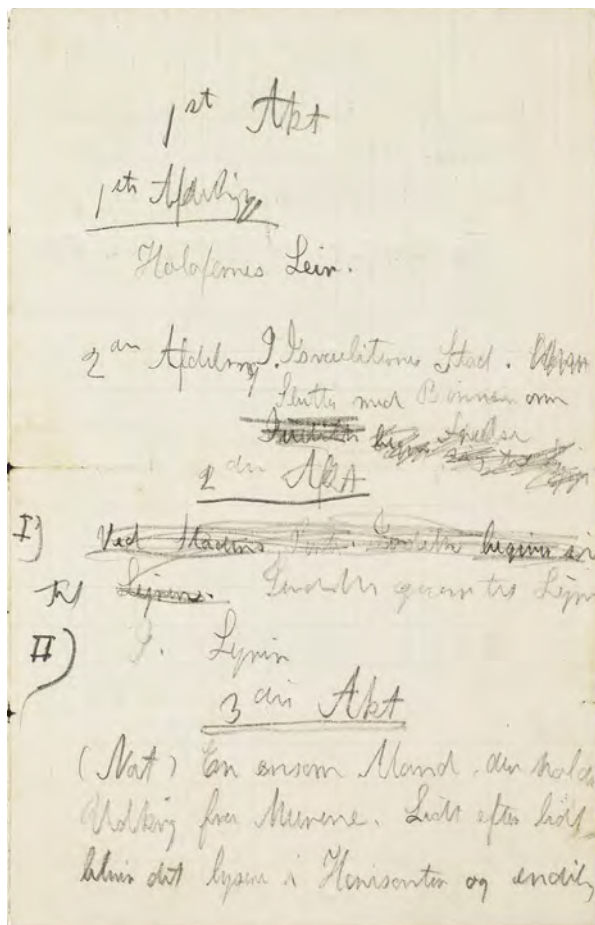 1st Akt
1ste Afdeling
Holofernes Leir.
2den Afdeling I. Israeliternes Stad.
Slutter med Bønnen om
Frelse
2den Akt
I) Ved Stadens Port. Judith begiver sig
til Lejren. Judiths gang til Lejr
II) I. Lejren
3die Akt
(Nat) En ensom Mand, der holde
Udkig fra Murene. Lidt efter lidt
bliver det lysere i Horisonten og endelig